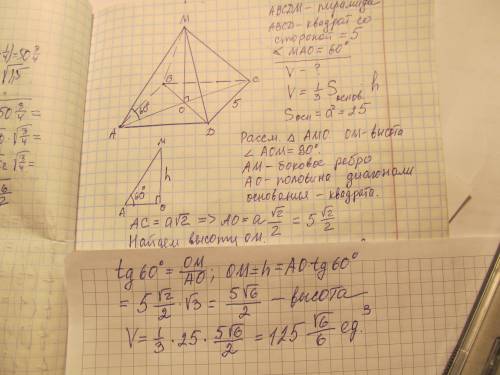 ABCDM - пирамида
ABCD - квадрат со
стороной = 5
∠ MAO = 60°
V - ?
V = 1/3 S основ h
S осн = a² = 25
M
B
C
60°
O
5
A
D
M
h
60°
A
O
Рассм. △ AMO OM - высота
∠ AOM = 90°.
AM - боковое ребро
AO - половина диагонали
основания - квадрата.
AC = a√2 => AO = a √2/2 = 5 √2/2
Найдем высоту OM.
tg 60° = OM/AO ; OM = h = AO · tg 60°
= 5 √2/2 · √3 = 5√6/2 - высота
V = 1/3 · 25 · 5√6/2 = 125 √6/6 ед.³